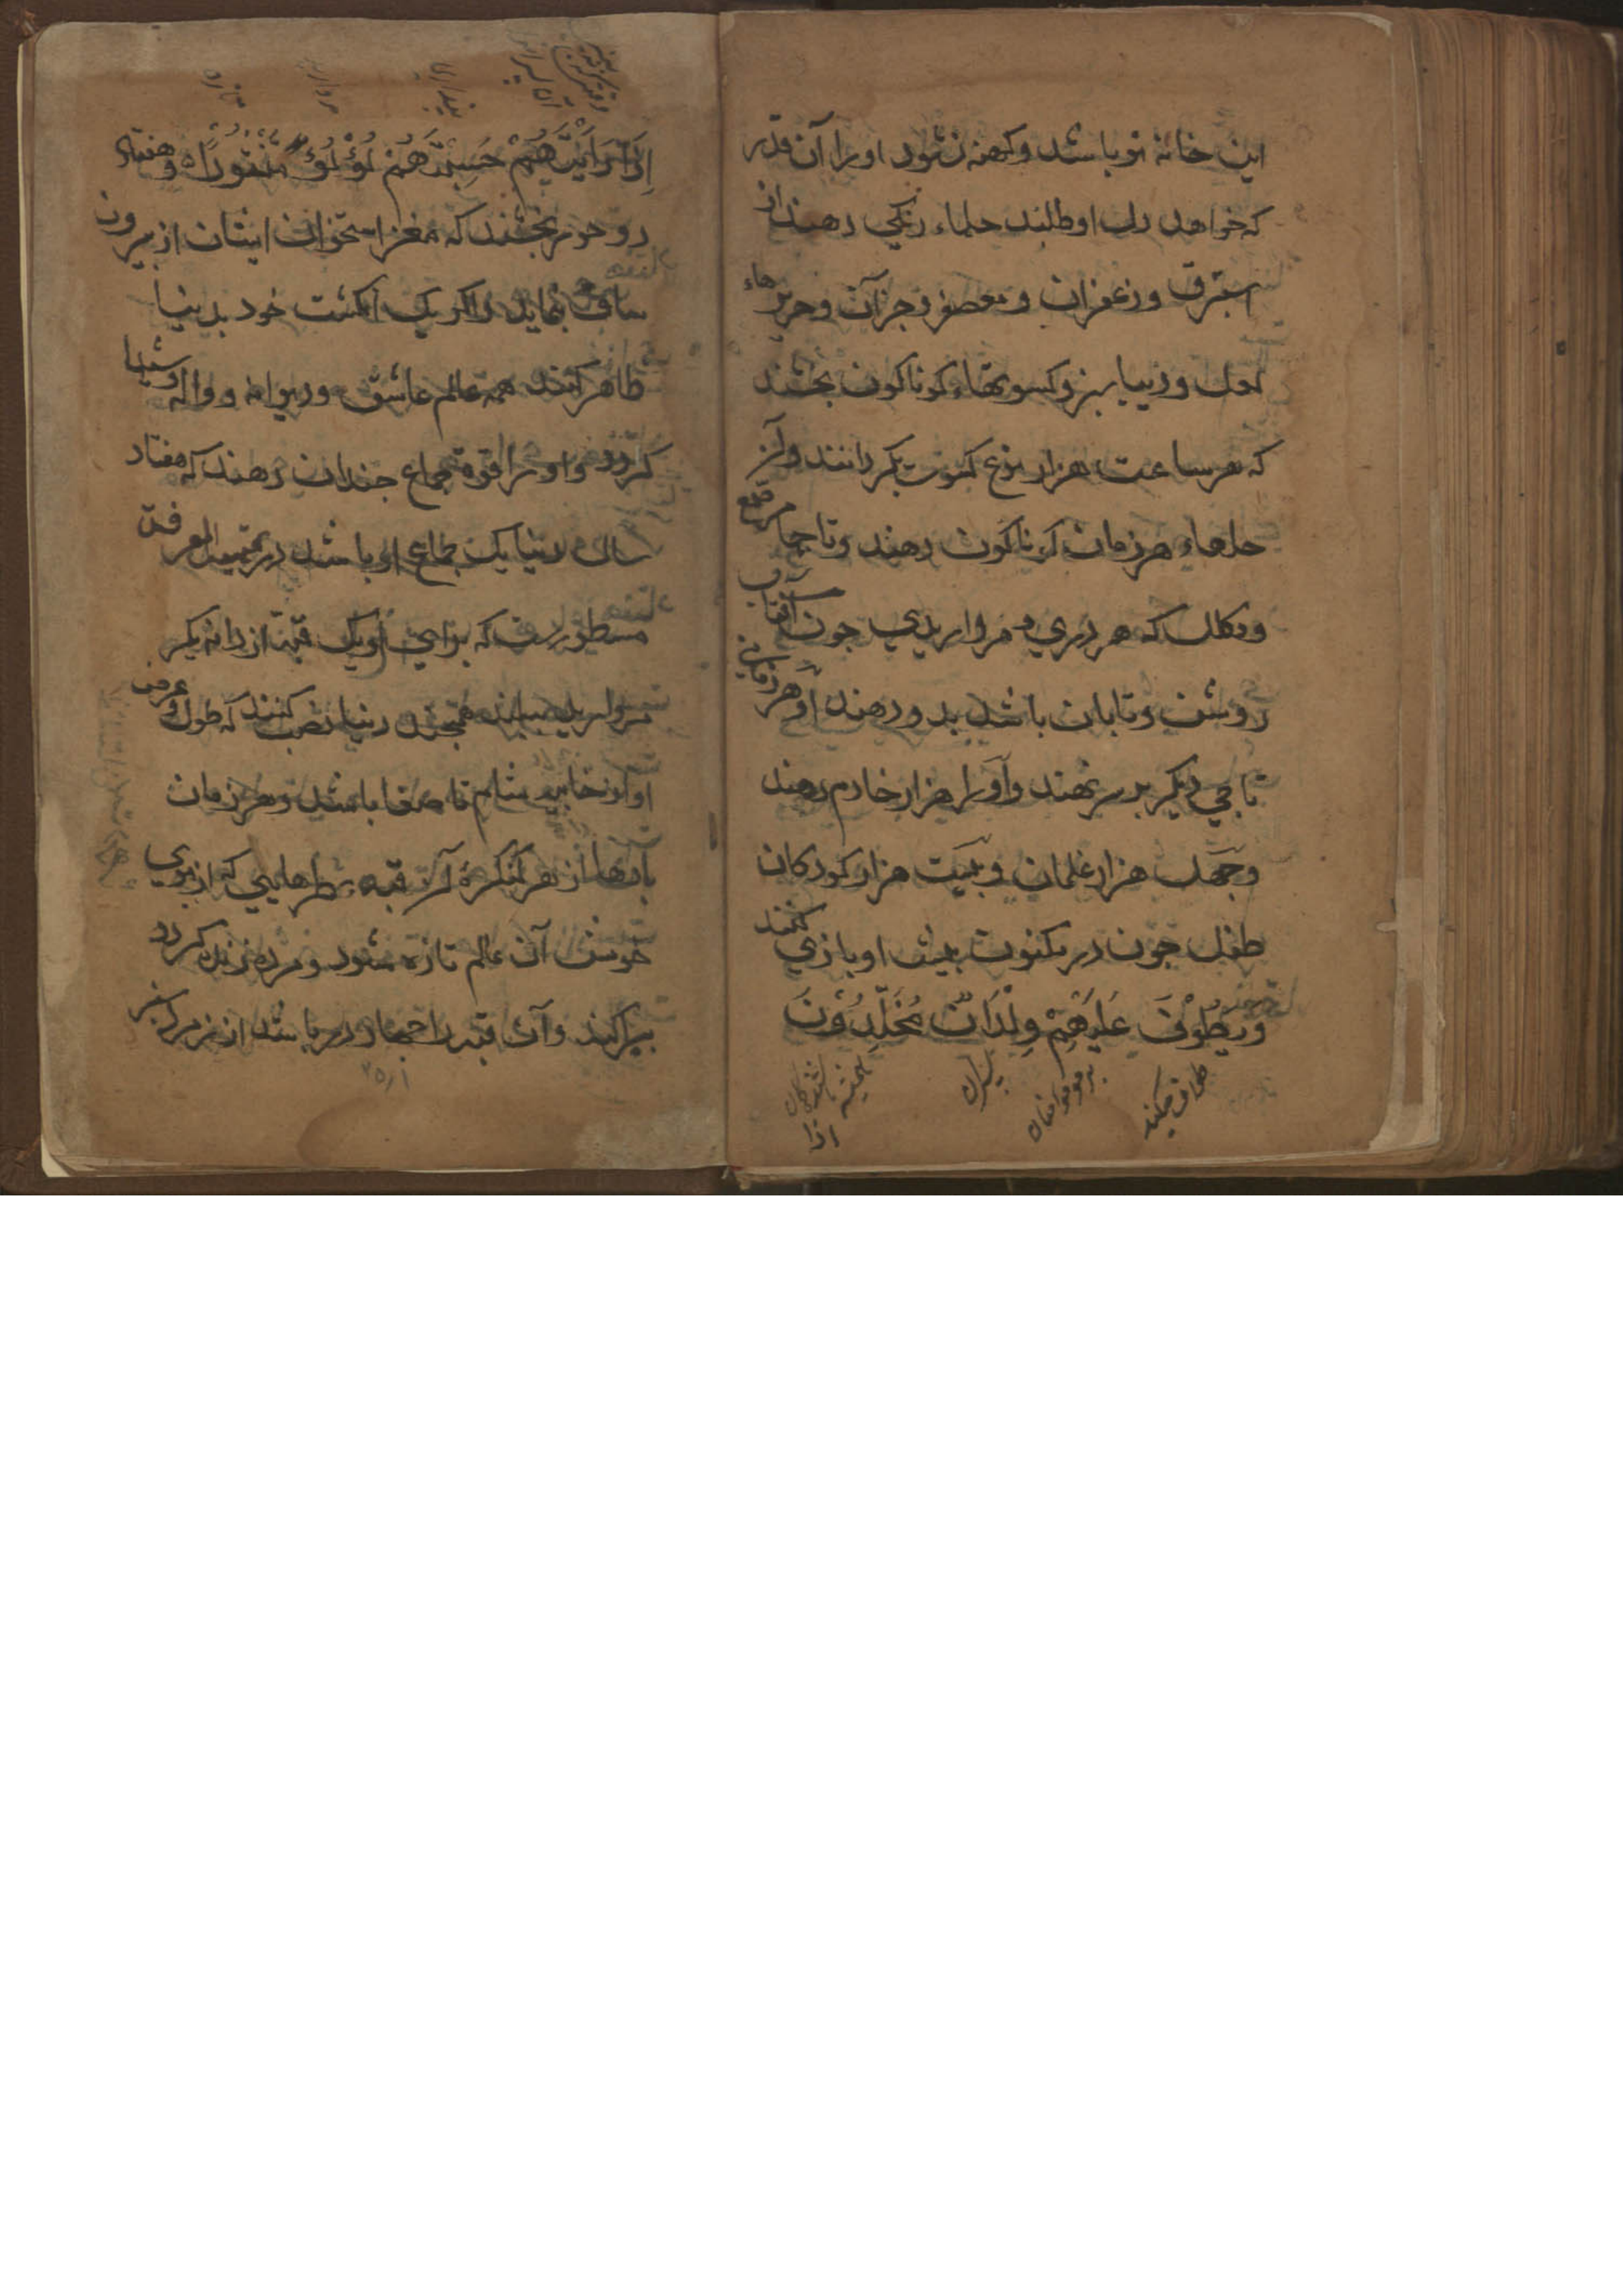 این خانه نو باشد وکهنه نشود اورا آن قدر
که خواهد دل او طلبد حلهاء رنگی دهند از
استبرق وزعفران ومعصفر وجز آن وحریرهاء
لعل وزیبا سبز وکسوتهاء کوناکون بخشند
که هر ساعت هزار نوع کسوت بکردانند واز
حلهاء هر زمان کوناکون دهند وتاجها مرصع
وکلاه که هر دری ومرواریدی چون آفتاب
روشن وتابان باشد بدو دهند وهر زمانی
تاجی دیکر بر سر نهند واورا هزار خادم دهند
وچهل هزار غلمان وبیست هزار کودکان
طفل چون در مکنون پیش او بازی کنند
وَيَطُوْفُ عَلَيْهِمْ وِلْدَانٌ مُخَلَّدُوْنَ
طواف میکند
پسران
اذا
إِذَا رَأَيْتَهُمْ حَسِبْتَهُمْ لُؤْلُؤًا مَنْثُورًا وهفتاد
دو حور بخشند که مغز استخوان ایشان از بیرون
ساق بنماید واکر یک انکشت خود بدنیا
ظاهر کنند همه عالم عاشق ودیوانه وواله وشیدا
کردد واورا قوة جماع چندان دهند که هفتاد
سال دنیا یک جماع او باشد در تمهید المعرفت
مسطورست که برای او یک قبه از دانه یک
مروارید سپید همچند دنیا نصب کنند که طول وعرض
او از مشام تا صفا باشد وهر زمان
بادها از هر کنکرهٔ آن قبه عطرهایی که از بوی
خوش آن عالم تازه شود ومرده زنده کردد
بیراکند وآن قبه را چهار در باشد از زمرد سبز